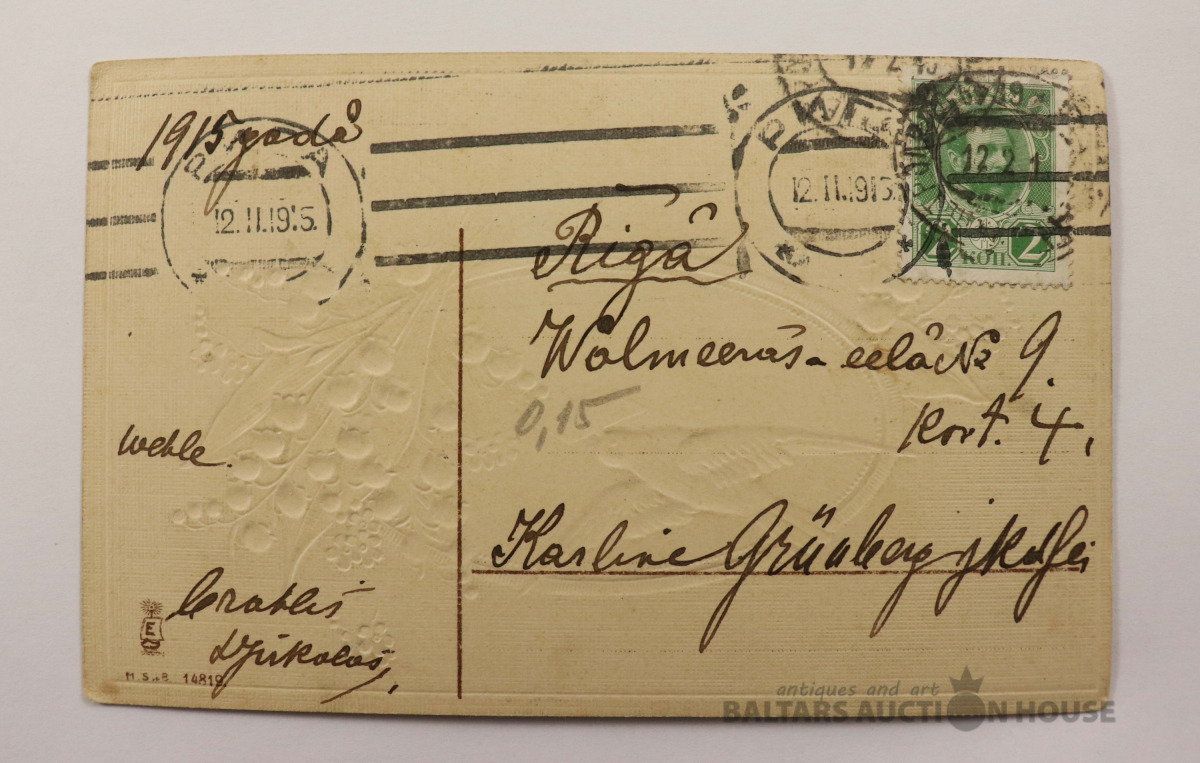 1915 gadâ
12.II.1915.
12.II.1915
12.2.1
КОП. 2
Rigâ
Wolmeeras-eelâ № 9.
kort. 4,
0,15
wehle.
Karline Grünberg
brahlis
M. S. i. B. 14819.
antiques and art
BALTARS AUCTION HOUSE